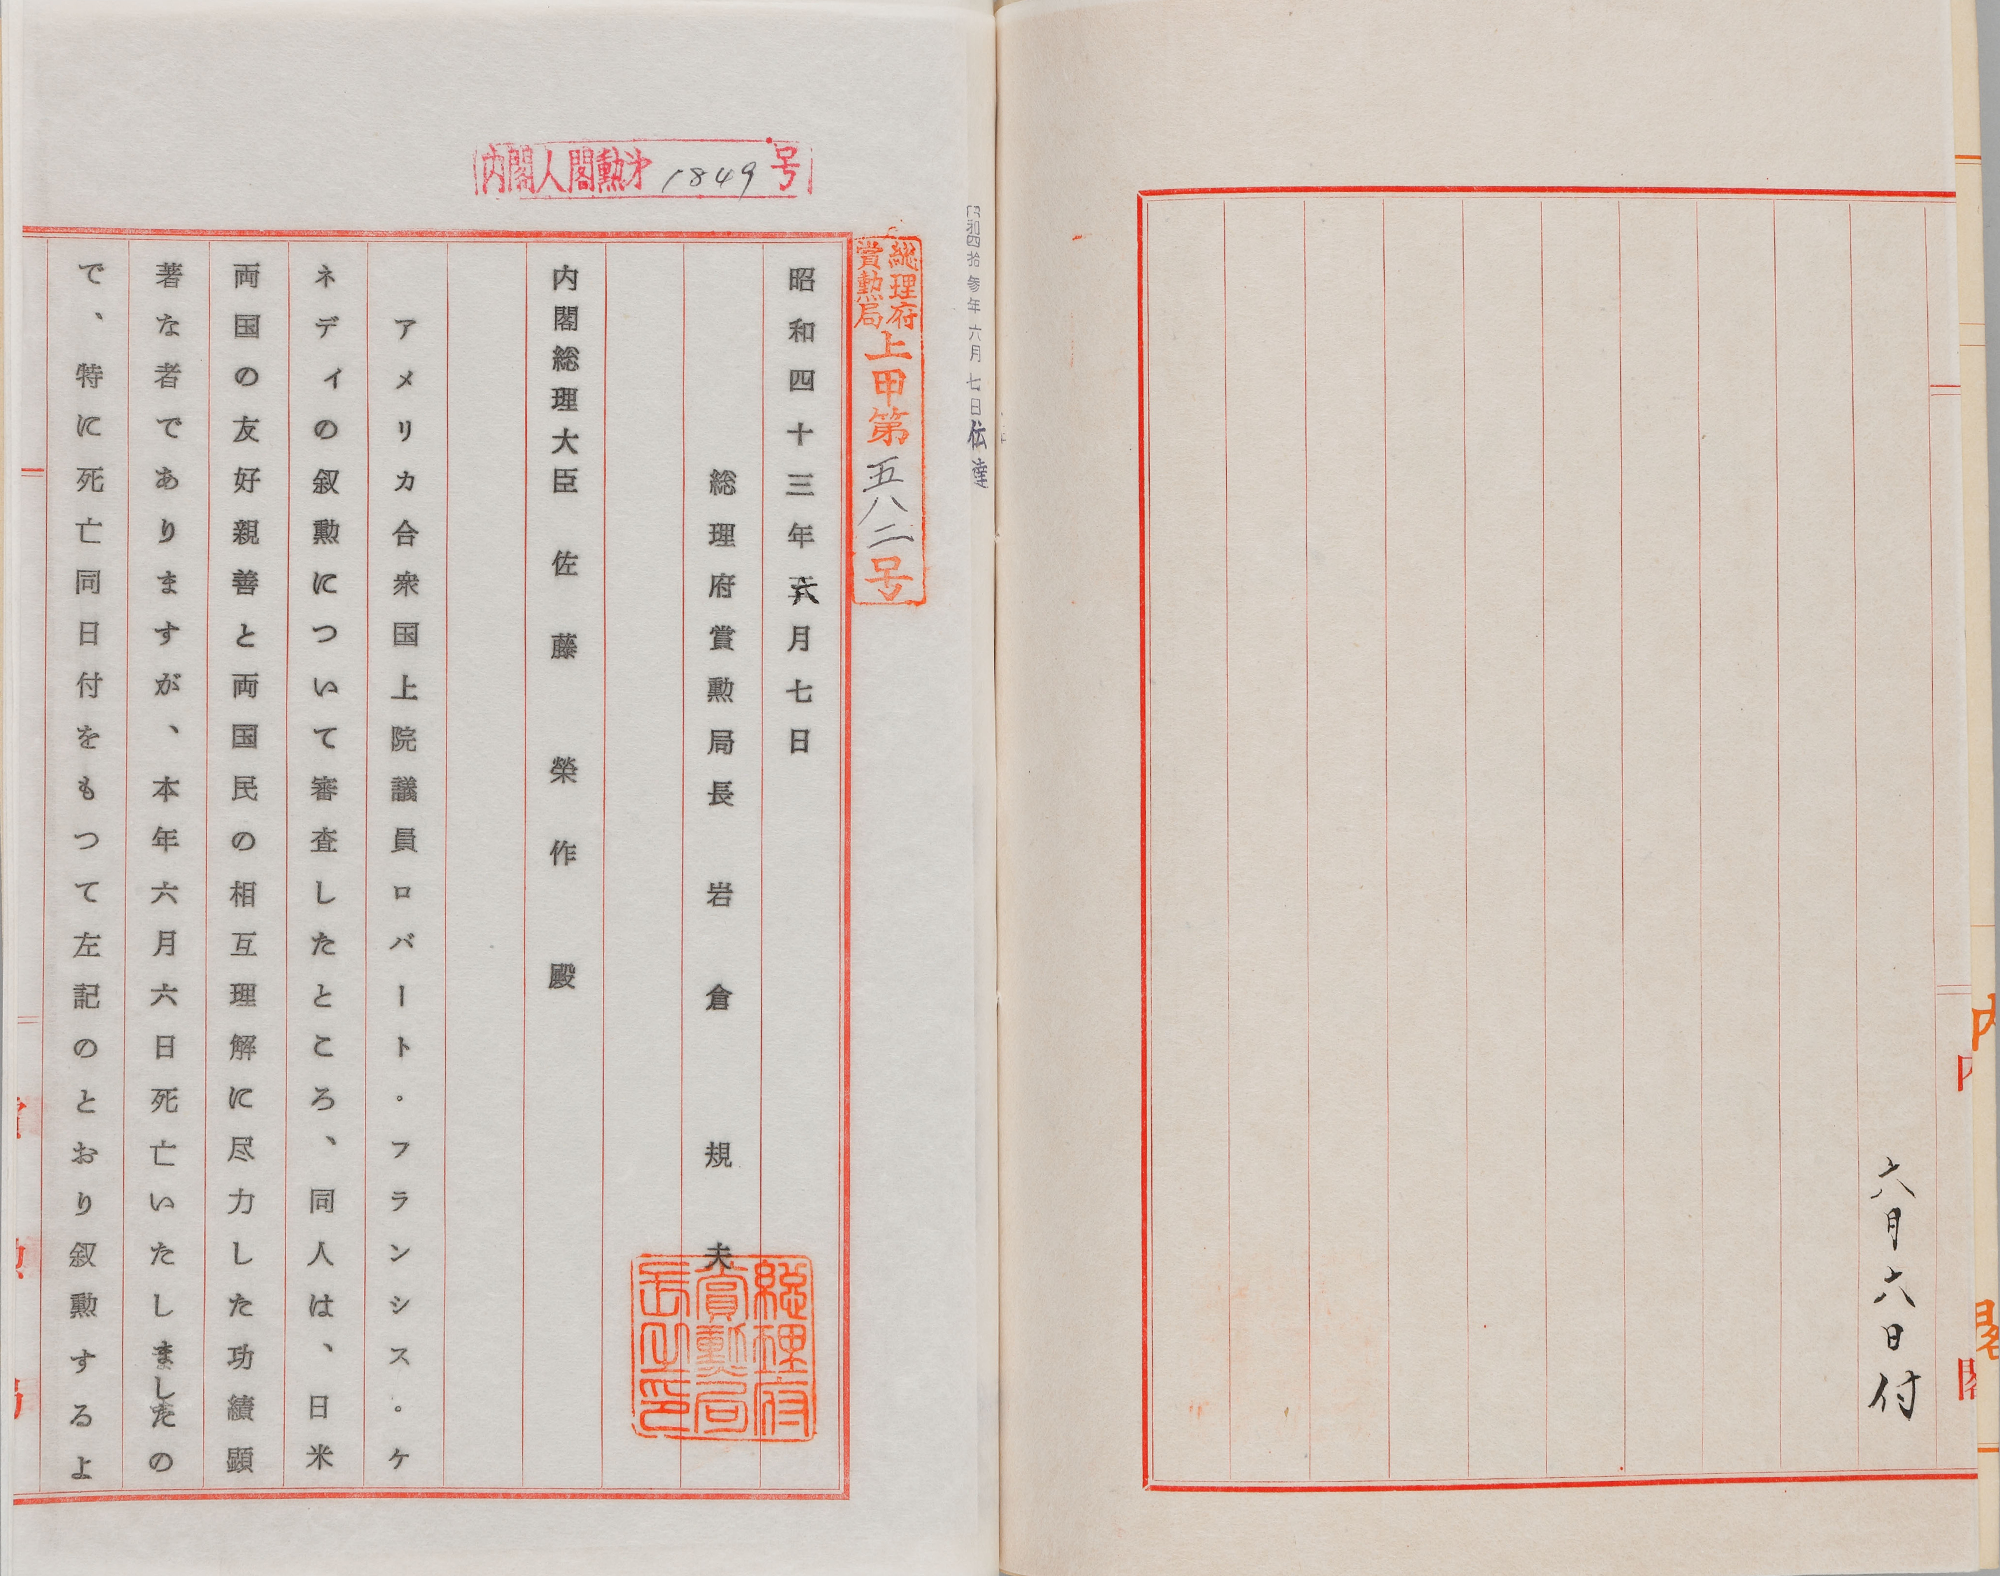 六月六日付
内閣
昭和四拾参年六月七日伝達
総理府
賞勲局
上甲第五八二号
内閣人閣勲第1849号
昭和四十三年六月七日
総理府賞勲局長 岩倉規夫
総理府
賞勲局
長之印
内閣総理大臣 佐藤榮作殿
アメリカ合衆国上院議員ロバート・フランシス・ケ
ネディの叙勲について審査したところ、同人は、日米
両国の友好親善と両国民の相互理解に尽力した功績顕
著な者でありますが、本年六月六日死亡いたしましたの
で、特に死亡同日付をもつて左記のとおり叙勲するよ